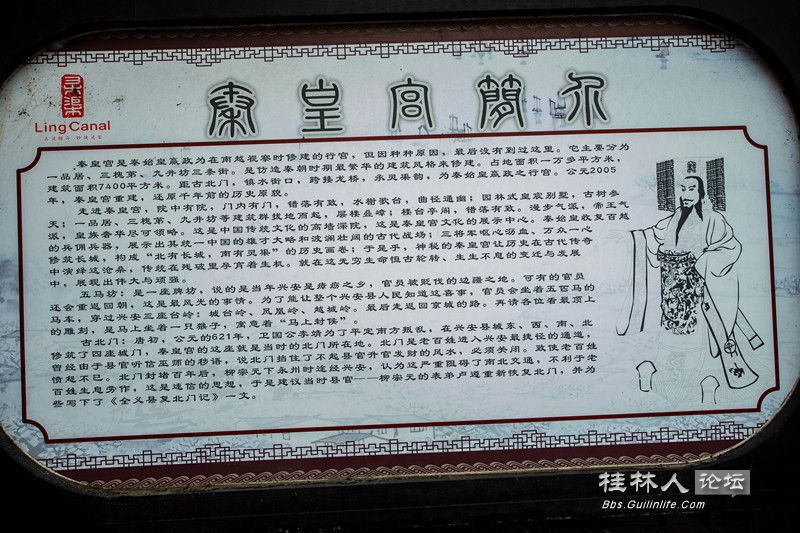 灵渠
Ling Canal
秦皇宫简介
秦皇宫是秦始皇嬴政为在南越视察时修建的行宫，但因种种原因，最后没有到过这里。它主要分为
一品居、三槐第、九井坊三条街。是仿造秦朝时期最繁华的建筑风格来修建。占地面积一万多平方米，
建筑面积7400平方米。距古北门，镇水街口，跨接龙桥，永灵渠韵，为秦始皇嬴政之行宫。公元2005
年，秦皇宫重建，还原千年前的历史原貌。
走进秦皇宫，院中有院，门内有门，错落有致，水榭歌台，曲径通幽；园林式皇宸别墅，古树参
天；一品居、三槐第、九井巷等建筑群拔地而起，层楼叠嶂；楼台亭阁，错落有致。漫步气派，帝王气
派，皇族奢华尽可领略。这是中国传统文化的高墙深院，这是秦皇宫文化的展示中心。秦始皇收复百越
的兵佣兵器，展示出其统一中国的雄才大略和波澜壮阔的古代战场；三将军呕心沥血、万众一心
修筑长城，构成“北有长城，南有灵渠”的历史画卷；于是乎，神秘的秦皇宫让历史在古代传奇
中演绎这沧桑，传统在残破里孕育着生机。就在这无穷生命恒古轮转、生生不息的变迁与发展
中，展现出伟大与顽强。
五马坊：是一座牌坊，说的是当年兴安是瘴疬之乡，官员被贬伐的边疆之地。可有的官员
还会重返回朝，这是最风光的事情。为了能让整个兴安县人民知道这喜事，官员会坐着五匹马的
马车，穿过兴安三座台岭：城台岭、凤凰岭、越城岭。最后走返回京城的路。再请各位看最顶上
的雕刻，是马上坐着一只猴子，寓意着“马上封侯”。
古北门：唐初，公元的621年，卫国公李靖为了平定南方叛乱，在兴安县城东、西、南、北
修筑了四座城门，秦皇宫的这座就是当时的北门所在地。北门是老百姓进入兴安最捷径的通道，
曾经由于县官听信巫师的秽语，说北门挡住了不起县官升官发财的风水，必须关闭。致使老百姓
愤怒不已。北门封堵百年后，柳宗元下永州时途经兴安，认为这严重阻碍了南北交通，不利于老
百姓生息劳作，这是迷信的思想，于是建议当时县官——柳宗元的表弟卢遵重新恢复北门，并为
些写下了《全义县复北门记》一文。
桂林人论坛
Bbs.Guilinlife.Com